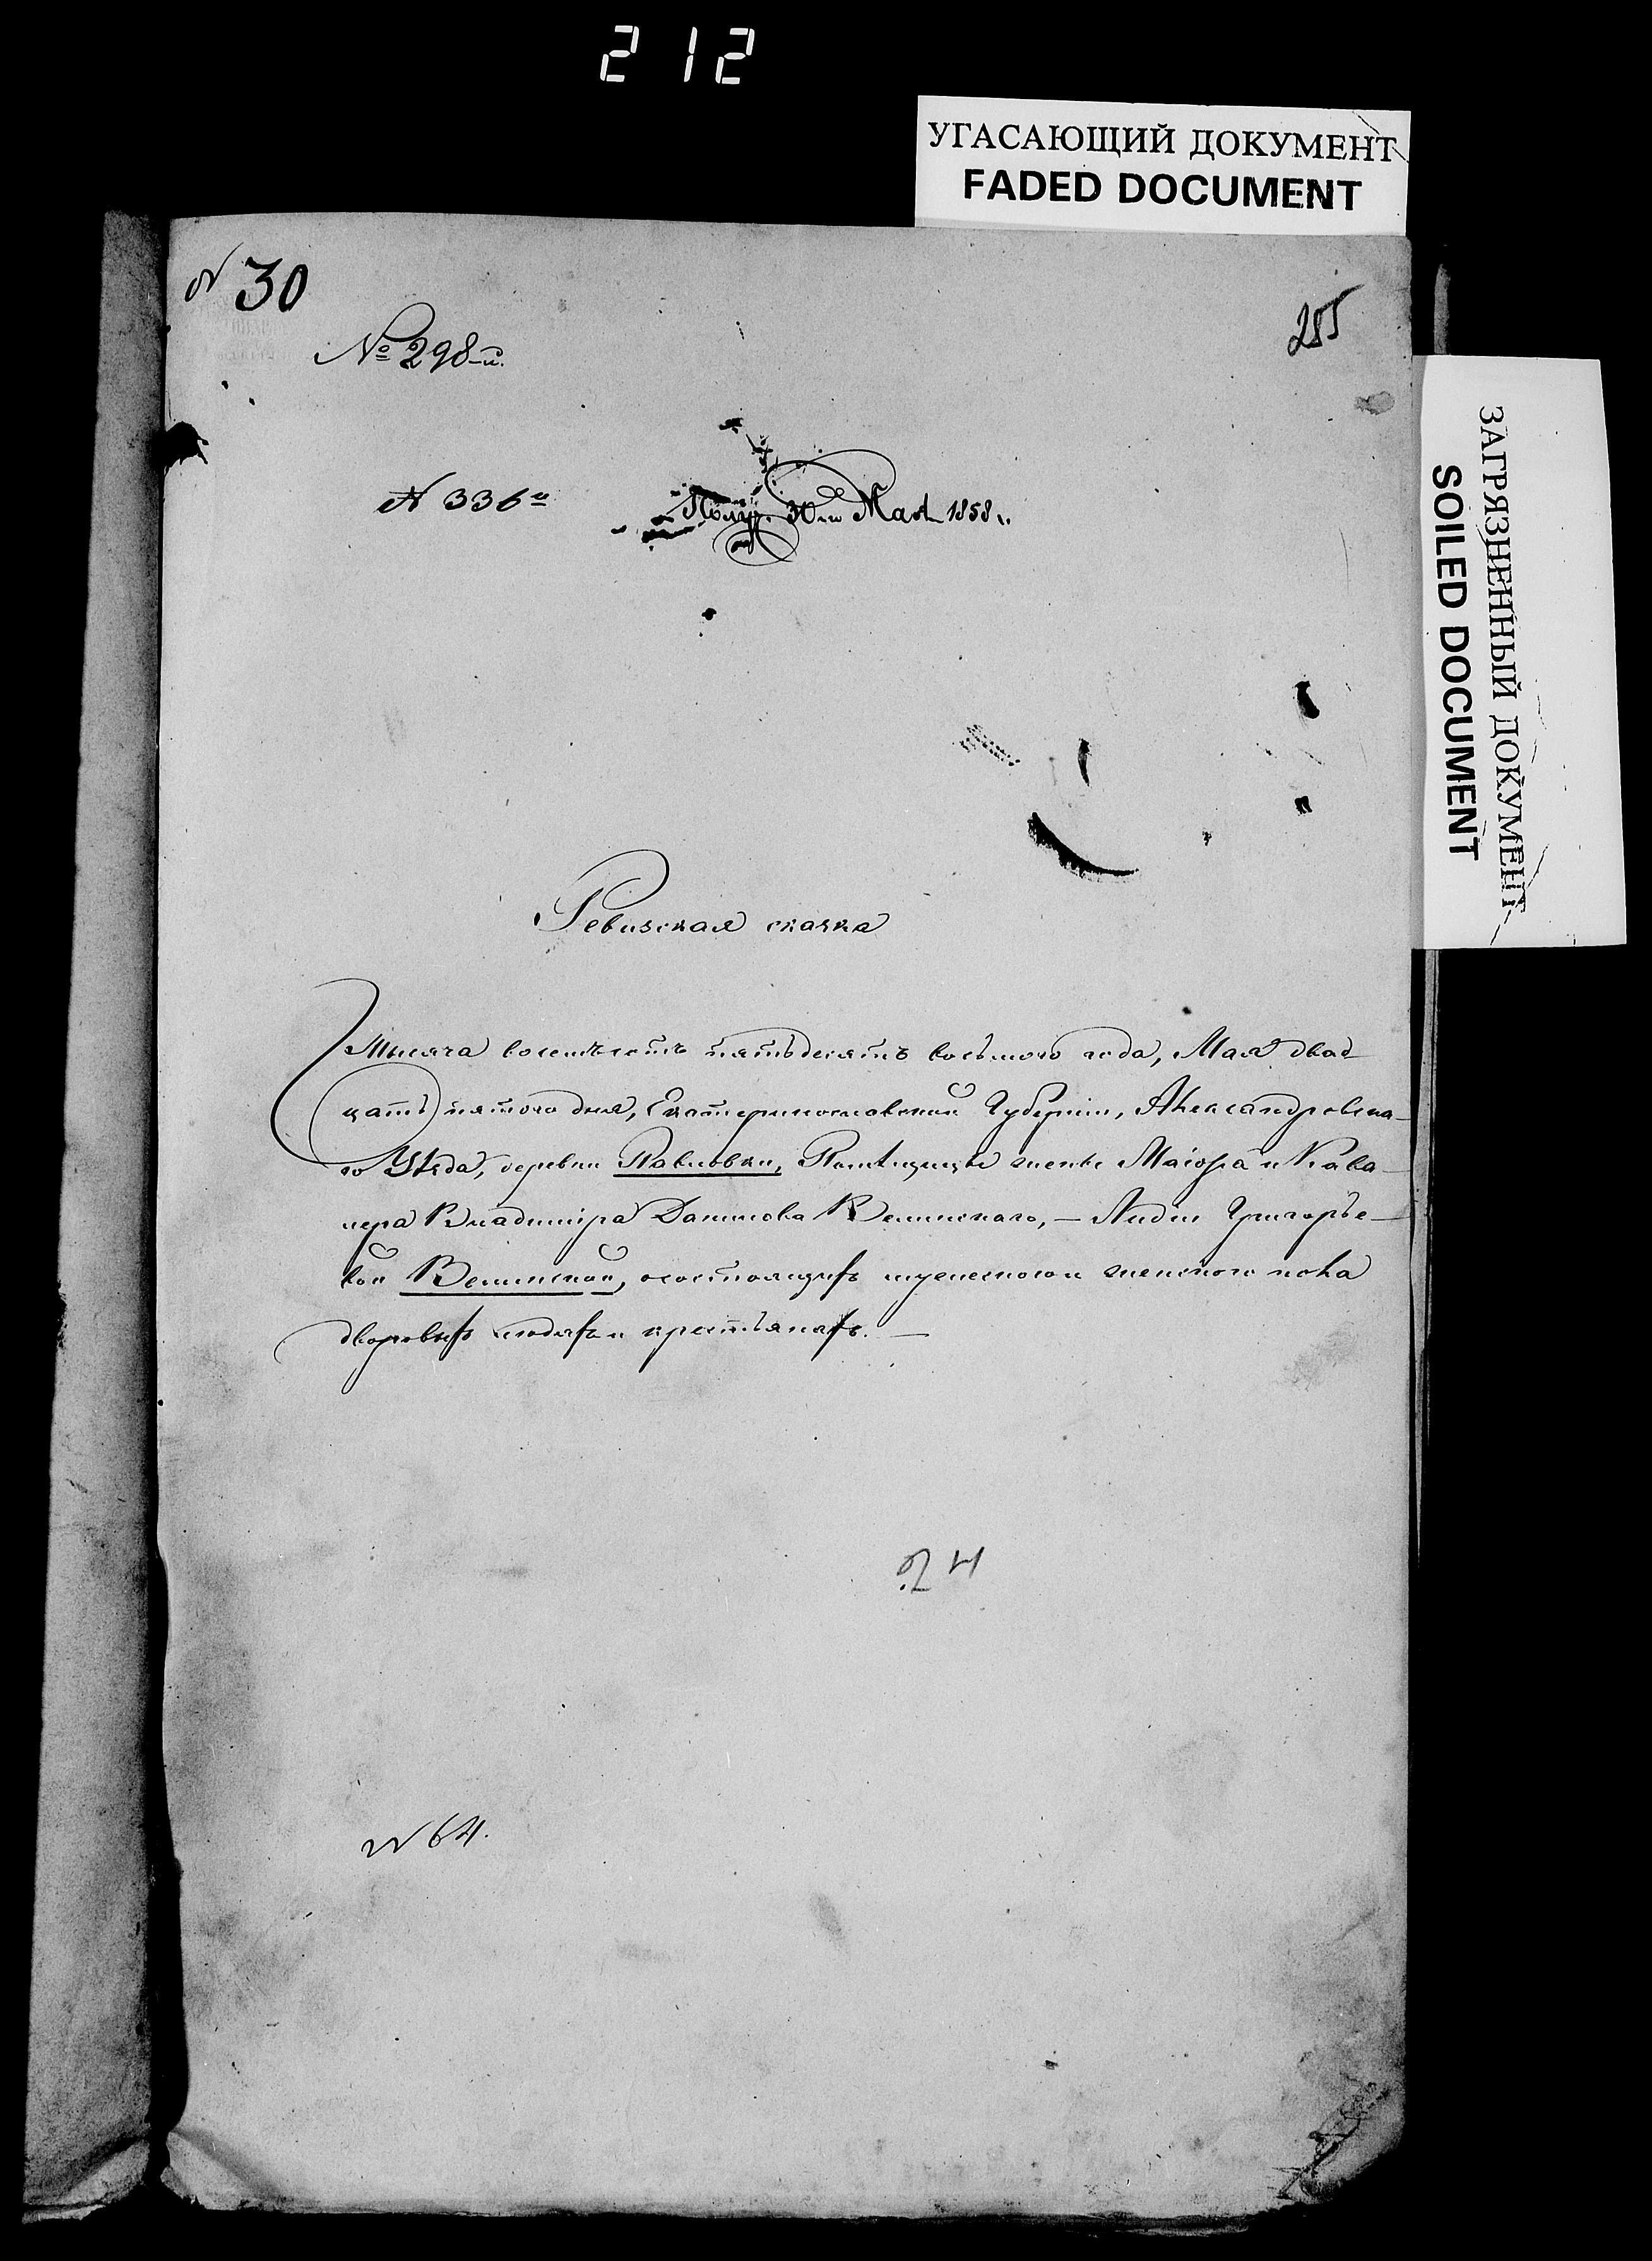 212
УГАСАЮЩИЙ ДОКУМЕНТ
FADED DOCUMENT
ЗАГРЯЗНЕННЫЙ ДОКУМЕНТ
SOILED DOCUMENT
N 30
285
№ 298-й.
N 336й
Получ. 30го Мая 1858 г.
Ревизская сказка
Тысяча восемьсотъ пятьдесятъ восьмого года, Мая двад-
цать пятого дня, Екатеринославской Губерніи, Александровска-
го Уѣзда, деревни Павловки, Помѣщицы жены Маіора и Кава-
лера Владиміра Данилова Велинскаго, — Лидіи Григорье-
вой Велинской, о состоящихъ мужескаго и женскаго пола
дворовыхъ людяхъ и крестьянахъ. —
N 64.